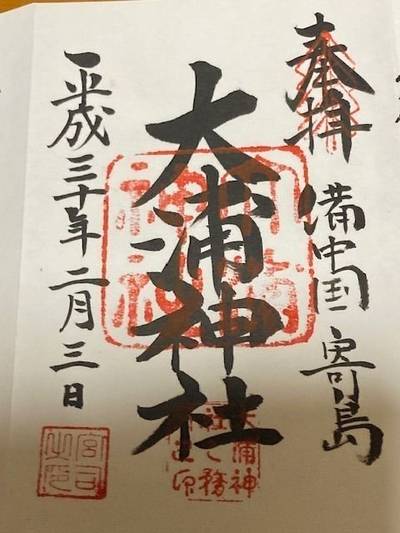 奉拝
備中国寄島
大浦神社
平成三十年二月三日
大浦神
社々務
所之印
宮司
之印